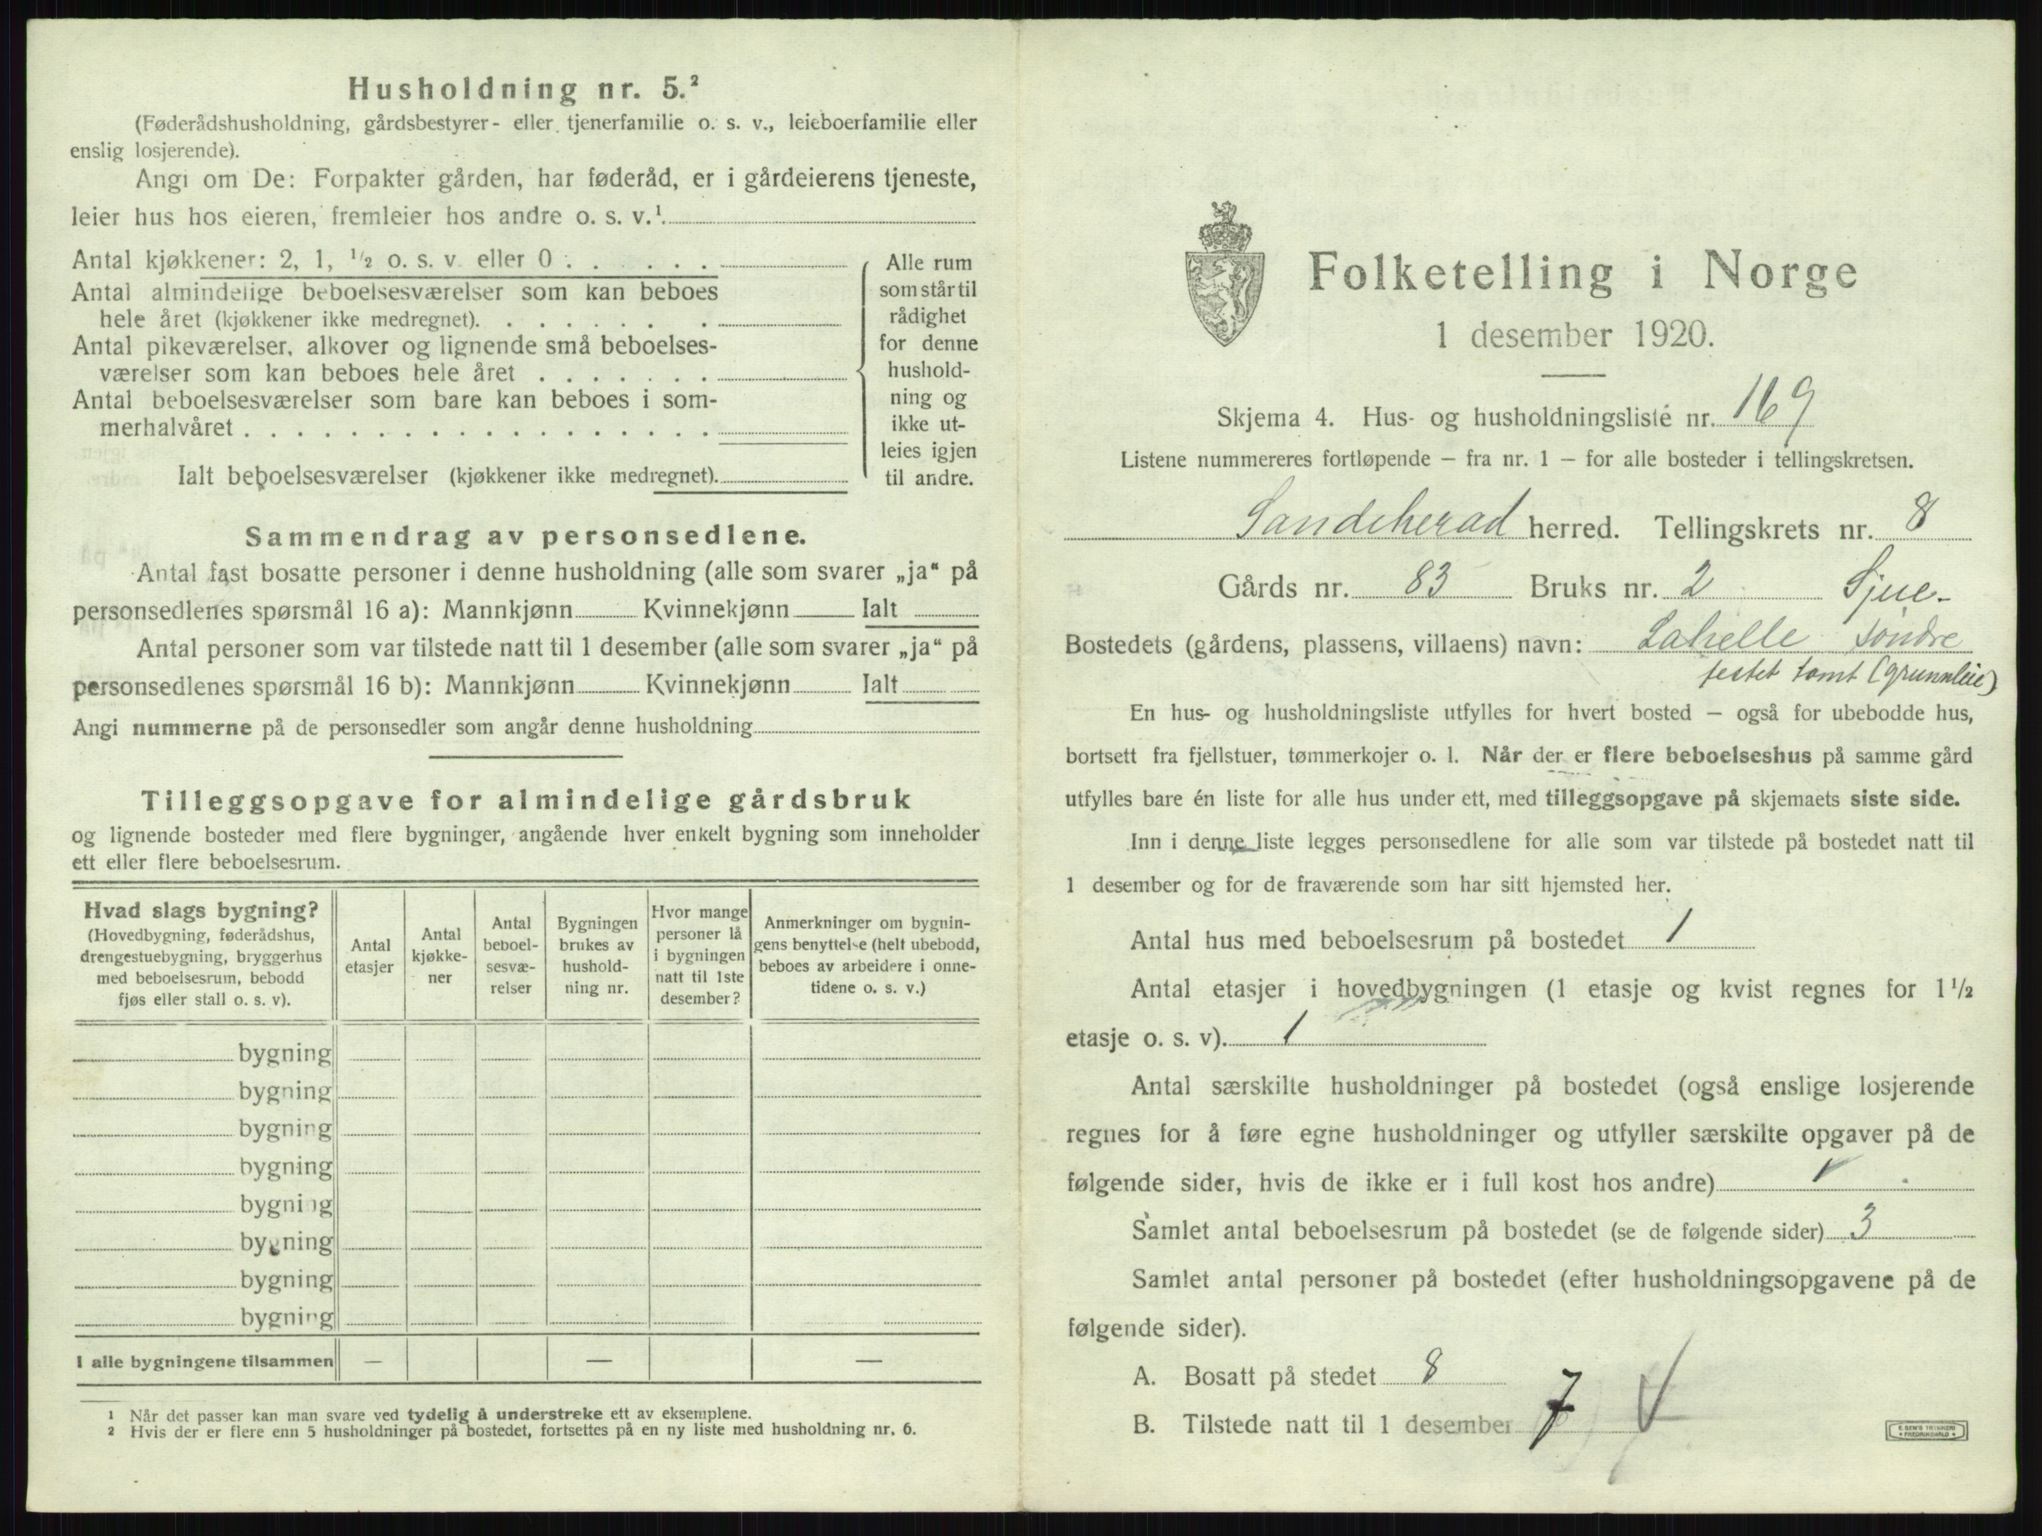 Husholdning nr. 5.²
(Føderådshusholdning, gårdsbestyrer- eller tjenerfamilie o. s. v., leieboerfamilie eller
enslig losjerende).
Angi om De: Forpakter gården, har føderåd, er i gårdeierens tjeneste,
leier hus hos eieren, fremleier hos andre o. s. v.¹
Antal kjøkkener: 2, 1, ¹/₂ o. s. v. eller 0
Antal almindelige beboelsesværelser som kan beboes
hele året (kjøkkener ikke medregnet).
Antal pikeværelser, alkover og lignende små beboelses-
værelser som kan beboes hele året
Antal beboelsesværelser som bare kan beboes i som-
merhalvåret
Ialt beboelsesværelser (kjøkkener ikke medregnet).
Alle rum
som står til
rådighet
for denne
hushold-
ning og
ikke ut-
leies igjen
til andre.
Sammendrag av personsedlene.
Antal fast bosatte personer i denne husholdning (alle som svarer „ja“ på
personsedlenes spørsmål 16 a): Mannkjønn Kvinnekjønn Ialt
Antal personer som var tilstede natt til 1 desember (alle som svarer „ja“ på
personsedlenes spørsmål 16 b): Mannkjønn Kvinnekjønn Ialt
Angi nummerne på de personsedler som angår denne husholdning
Tilleggsopgave for almindelige gårdsbruk
og lignende bosteder med flere bygninger, angående hver enkelt bygning som inneholder
ett eller flere beboelsesrum.
Hvad slags bygning?
(Hovedbygning, føderådshus,
drengestuebygning, bryggerhus
med beboelsesrum, bebodd
fjøs eller stall o. s. v).
Antal
etasjer
Antal
kjøkke-
ner
Antal
beboel-
sesvæ-
relser
Bygningen
brukes av
hushold-
ning nr.
Hvor mange
personer lå
i bygningen
natt til 1ste
desember?
Anmerkninger om bygnin-
gens benyttelse (helt ubebodd,
beboes av arbeidere i onne-
tidene o. s. v.)
bygning
bygning
bygning
bygning
bygning
bygning
bygning
bygning
I alle bygningene tilsammen — — —
¹ Når det passer kan man svare ved tydelig å understreke ett av eksemplene.
² Hvis der er flere enn 5 husholdninger på bostedet, fortsettes på en ny liste med husholdning nr. 6.
Folketelling i Norge
1 desember 1920.
Skjema 4. Hus- og husholdningsliste nr. 169
Listene nummereres fortløpende — fra nr. 1 — for alle bosteder i tellingskretsen.
Sandeherad herred. Tellingskrets nr. 8
Gårds nr. 83 Bruks nr. 2 Sjue-
Bostedets (gårdens, plassens, villaens) navn: Lahelle søndre
festet tomt (grunnleie)
En hus- og husholdningsliste utfylles for hvert bosted — også for ubebodde hus,
bortsett fra fjellstuer, tømmerkojer o. l. Når der er flere beboelseshus på samme gård
utfylles bare én liste for alle hus under ett, med tilleggsopgave på skjemaets siste side.
Inn i denne liste legges personsedlene for alle som var tilstede på bostedet natt til
1 desember og for de fraværende som har sitt hjemsted her.
Antal hus med beboelsesrum på bostedet 1
Antal etasjer i hovedbygningen (1 etasje og kvist regnes for 1¹/₂
etasje o. s. v). 1
Antal særskilte husholdninger på bostedet (også enslige losjerende
regnes for å føre egne husholdninger og utfyller særskilte opgaver på de
følgende sider, hvis de ikke er i full kost hos andre)
Samlet antal beboelsesrum på bostedet (se de følgende sider) 3
Samlet antal personer på bostedet (efter husholdningsopgavene på de
følgende sider).
A. Bosatt på stedet 8
B. Tilstede natt til 1 desember 7